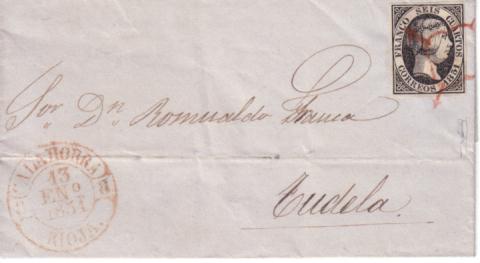 FRANCO SEIS CUARTOS
CORREOS 1851
Sor Dn Romualdo
Tudela.
CALAHORRA
13
ENO
1851
RIOJA.